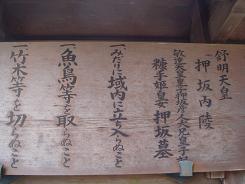 舒明天皇
押坂内陵
敏達天皇皇子押坂彦人大兄皇子妃
糠手姫皇女押坂墓
一みだりに域内に立入らぬこと
一魚鳥等を取らぬこと
一竹木等を切らぬこと